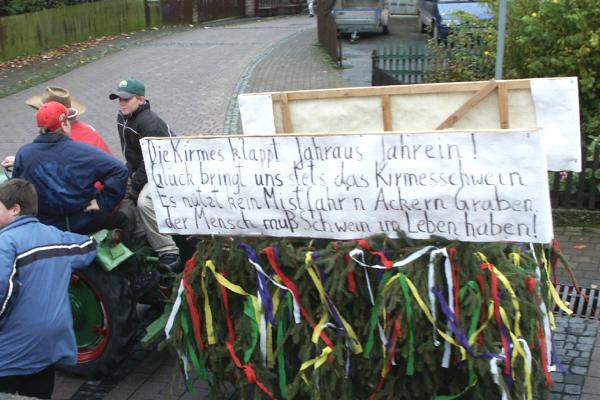 Die Kirmes klappt Jahraus Jahrein!
Glück bringt uns stets das Kirmesschwein
Es nützt kein Mistfahr'n Ackern Graben
der Mensch muß Schwein im Leben haben!